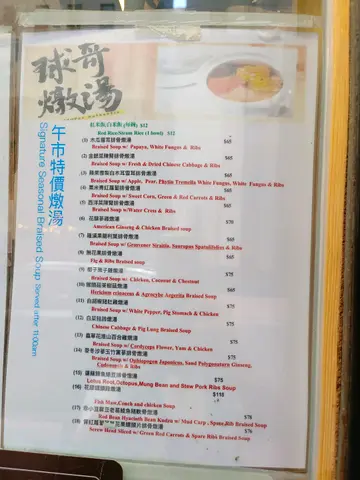 球哥
燉湯
午市特價燉湯
Signature Seasonal Braised Soup Served after 11:00am
紅米飯/白米飯 (每碗) $12
Red Rice/Steam Rice (1 bowl) $12
(1) 木瓜雪耳排骨燉湯 $65
Braised Soup w/ Papaya, White Fungus & Ribs
(2) 金銀菜陳腎排骨燉湯 $65
Braised Soup w/ Fresh & Dried Chinese Cabbage & Ribs
(3) 蘋果雪梨白木耳雪耳排骨燉湯 $65
Braised Soup w/ Apple, Pear, White Fungus, White Fungus & Ribs
(4) 粟米青紅蘿蔔排骨燉湯 $65
Braised Soup w/ Sweet Corn, Green & Red Carrots & Ribs
(5) 西洋菜陳腎排骨燉湯 $65
Braised Soup w/Water Cress & Ribs
(6) 花旗參雞燉湯 $70
American Ginseng & Chicken Braised soup
(7) 羅漢果 排骨燉湯 $65
Braised Soup w/ & Ribs
(8) 無花果排骨燉湯 $65
Fig & Ribs Braised soup
(9) 椰子 雞燉湯 $75
Braised Soup w/ Chicken, Coconut & Chestnut
(10) $75
Braised Soup
(11) 白胡椒豬肚雞燉湯 $75
Braised Soup w/ White Pepper, Pig Stomach & Chicken
(12) 白菜豬肺燉湯 $75
Chinese Cabbage & Pig Lung Braised Soup
(13) 蟲草花淮山百合雞燉湯 $75
Braised Soup w/ Cordyceps Flower, Yam & Chicken
(14) 麥冬沙參玉竹 排骨燉湯 $75
Braised Soup w/ Ginseng,
& Ribs
(15) $75
Lotus Root,Octopus,Mung Bean and Stew Pork Ribs Soup
(16) 花膠 燉湯 $110
Fish Maw,Conch and chicken Soup
(17) $75
Red Bean Hyacinth Bean Kudzu w/ Mud Carp , Spare Rib Braised Soup
(18) 排骨燉湯 $76
Screw Head Sliced w/ Green Red Carrots & Spare Ribs Braised Soup